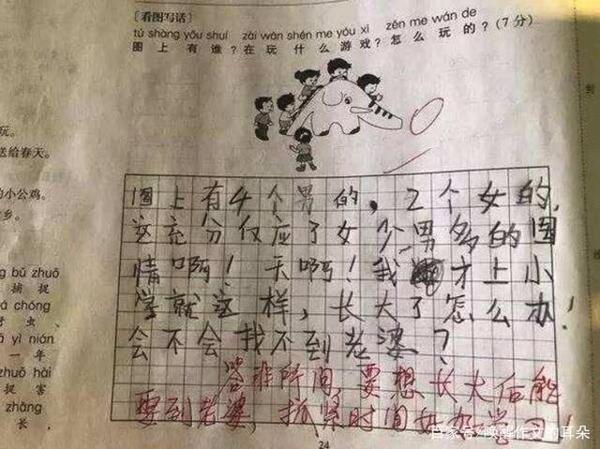 [看图写话]
tú shàng yǒu shuí zài wán shén me yóu xì zěn me wán de
图上有谁？在玩什么游戏？怎么玩的？(7分)
玩。
送给春天。
的小公鸡。
乡。
图上有4个男的，2个女的,
这充分仅应了女少男多的国
情啊！天啊！我才上小
学就这样，长大了怎么办！
会不会找不到老婆？
答非所问，要想长大后能
娶到老婆，抓紧时间好好学习！
ng bǔ zhuō
捕捉
á chóng
虫、
à yì nián
一年
zhuō hài
捉害
zhǎng
长，
24